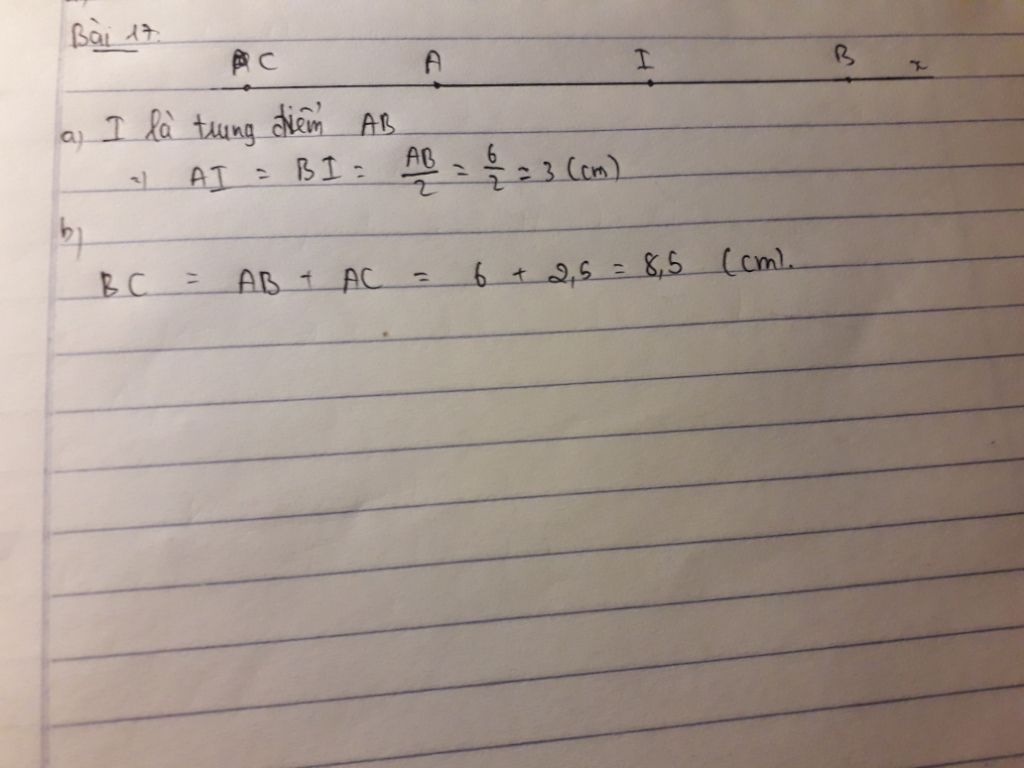 Bài 17.
C A I B x
a) I là trung điểm AB
=) AI = BI = AB/2 = 6/2 = 3 (cm)
b)
BC = AB + AC = 6 + 2,5 = 8,5 (cm).